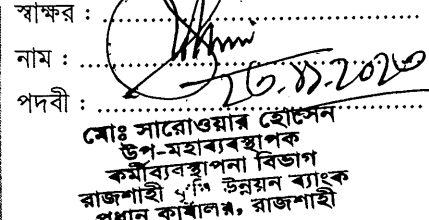 স্বাক্ষর :
নাম :
২৩.১১.২০২৩
পদবী :
মোঃ সারোওয়ার হোসেন
উপ-মহাব্যবস্থাপক
কর্মীব্যবস্থাপনা বিভাগ
রাজশাহী কৃষি উন্নয়ন ব্যাংক
প্রধান কার্যালয়, রাজশাহী